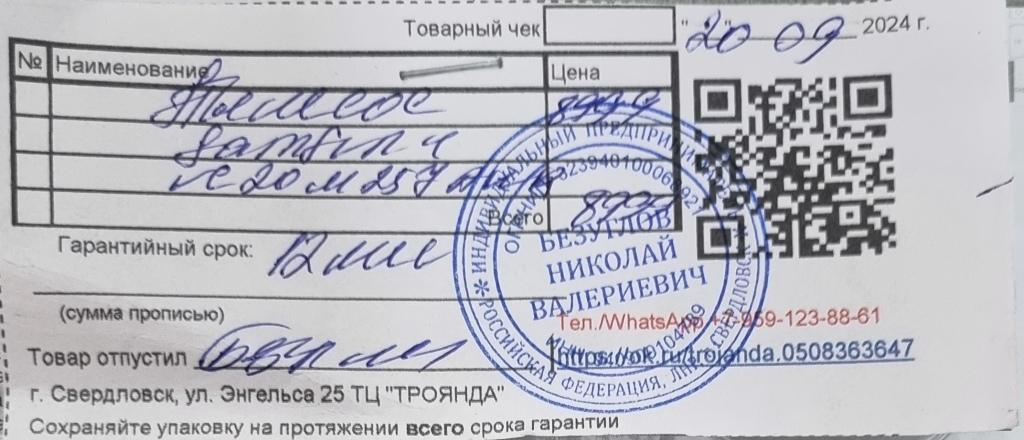 Товарный чек "20" 09 2024 г.
№ Наименование Цена
Пылесос 8999
Samsung
VC20M257
Всего 8999
Гарантийный срок: 12 мес
(сумма прописью)
Товар отпустил
г. Свердловск, ул. Энгельса 25 ТЦ "ТРОЯНДА"
Сохраняйте упаковку на протяжении всего срока гарантии
Тел./WhatsApp +7-959-123-88-61
https://ok.ru/trojanda.0508363647
ИНДИВИДУАЛЬНЫЙ ПРЕДПРИНИМАТЕЛЬ
РОССИЙСКАЯ ФЕДЕРАЦИЯ, ЛНР, СВЕРДЛОВСК
БЕЗУГЛОВ
НИКОЛАЙ
ВАЛЕРИЕВИЧ